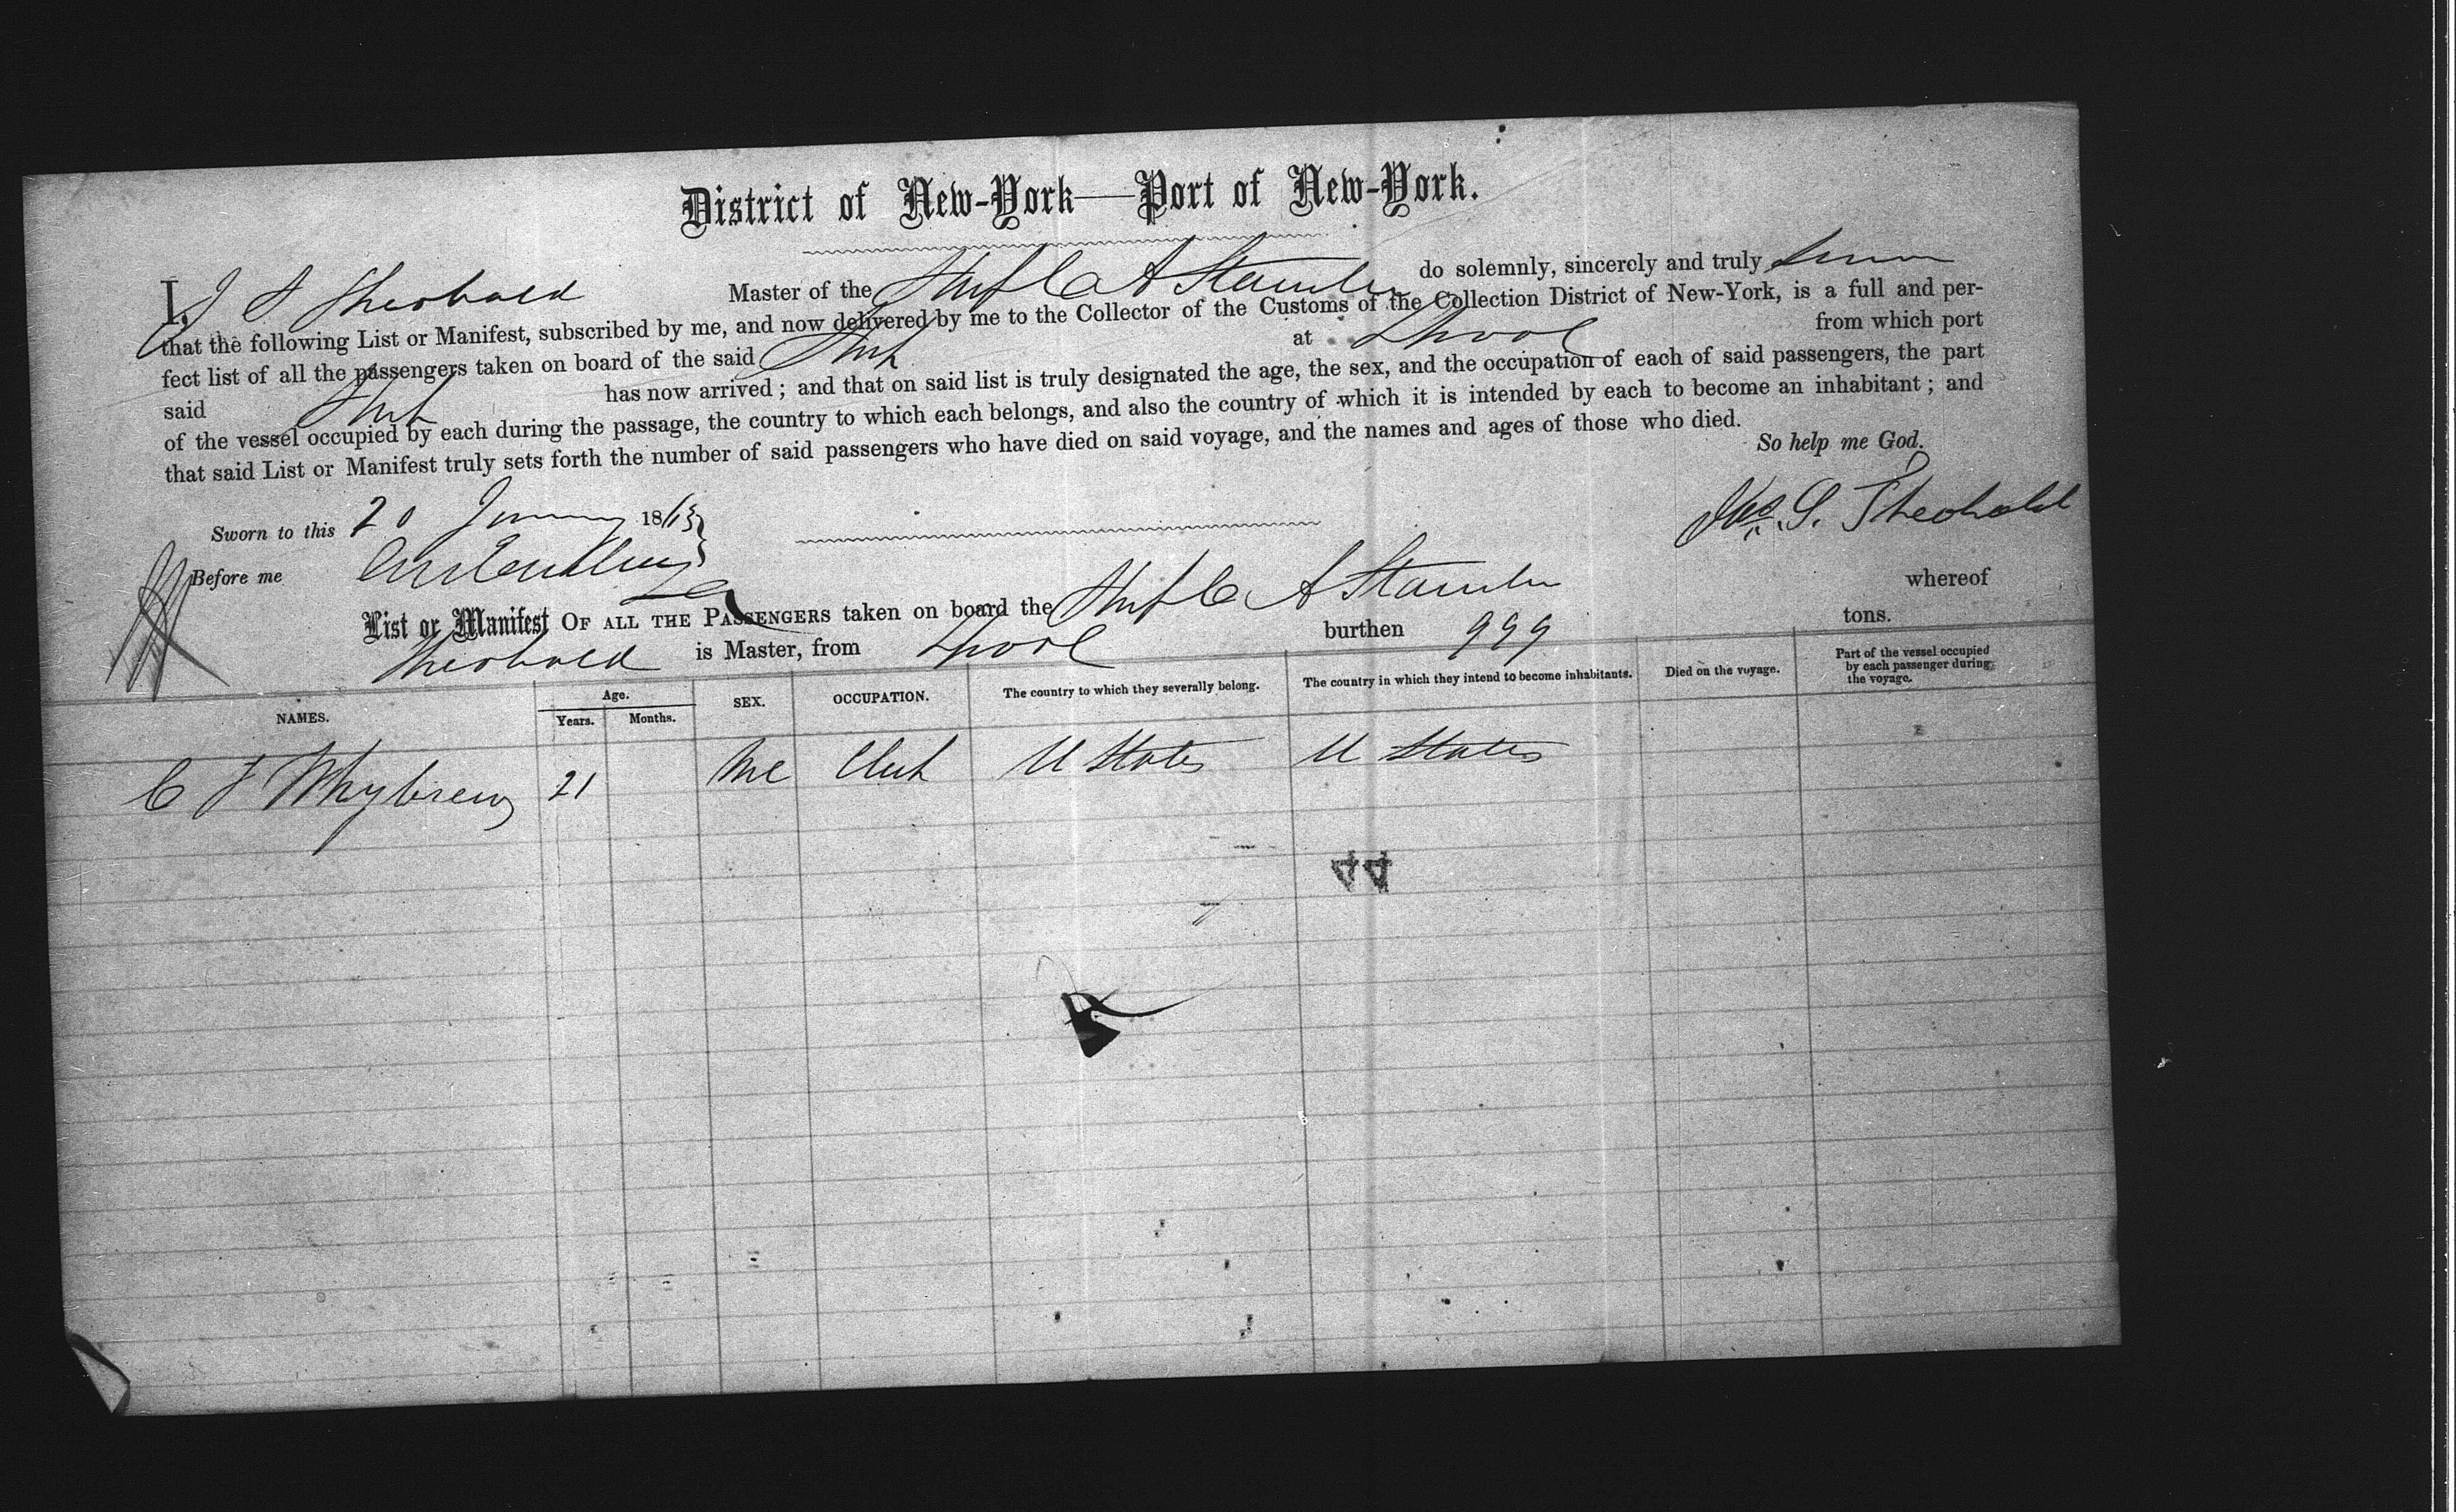 District of New-York—Port of New-York.
I, J S Theobald Master of the Ship C A Stamler do solemnly, sincerely and truly swear
that the following List or Manifest, subscribed by me, and now delivered by me to the Collector of the Customs of the Collection District of New-York, is a full and per-
fect list of all the passengers taken on board of the said Ship at Lpool from which port
said Ship has now arrived; and that on said list is truly designated the age, the sex, and the occupation of each of said passengers, the part
of the vessel occupied by each during the passage, the country to which each belongs, and also the country of which it is intended by each to become an inhabitant; and
that said List or Manifest truly sets forth the number of said passengers who have died on said voyage, and the names and ages of those who died.
So help me God.
Sworn to this 20 January 1863
Jas. S. Theobald
Before me
List or Manifest OF ALL THE PASSENGERS taken on board the Ship C A Stamler whereof
Theobald is Master, from Lpool burthen 999 tons.
NAMES. Age. Years. Months. SEX. OCCUPATION. The country to which they severally belong. The country in which they intend to become inhabitants. Died on the voyage. Part of the vessel occupied by each passenger during the voyage.
C F Whybrew 21 Me Clerk U States U States